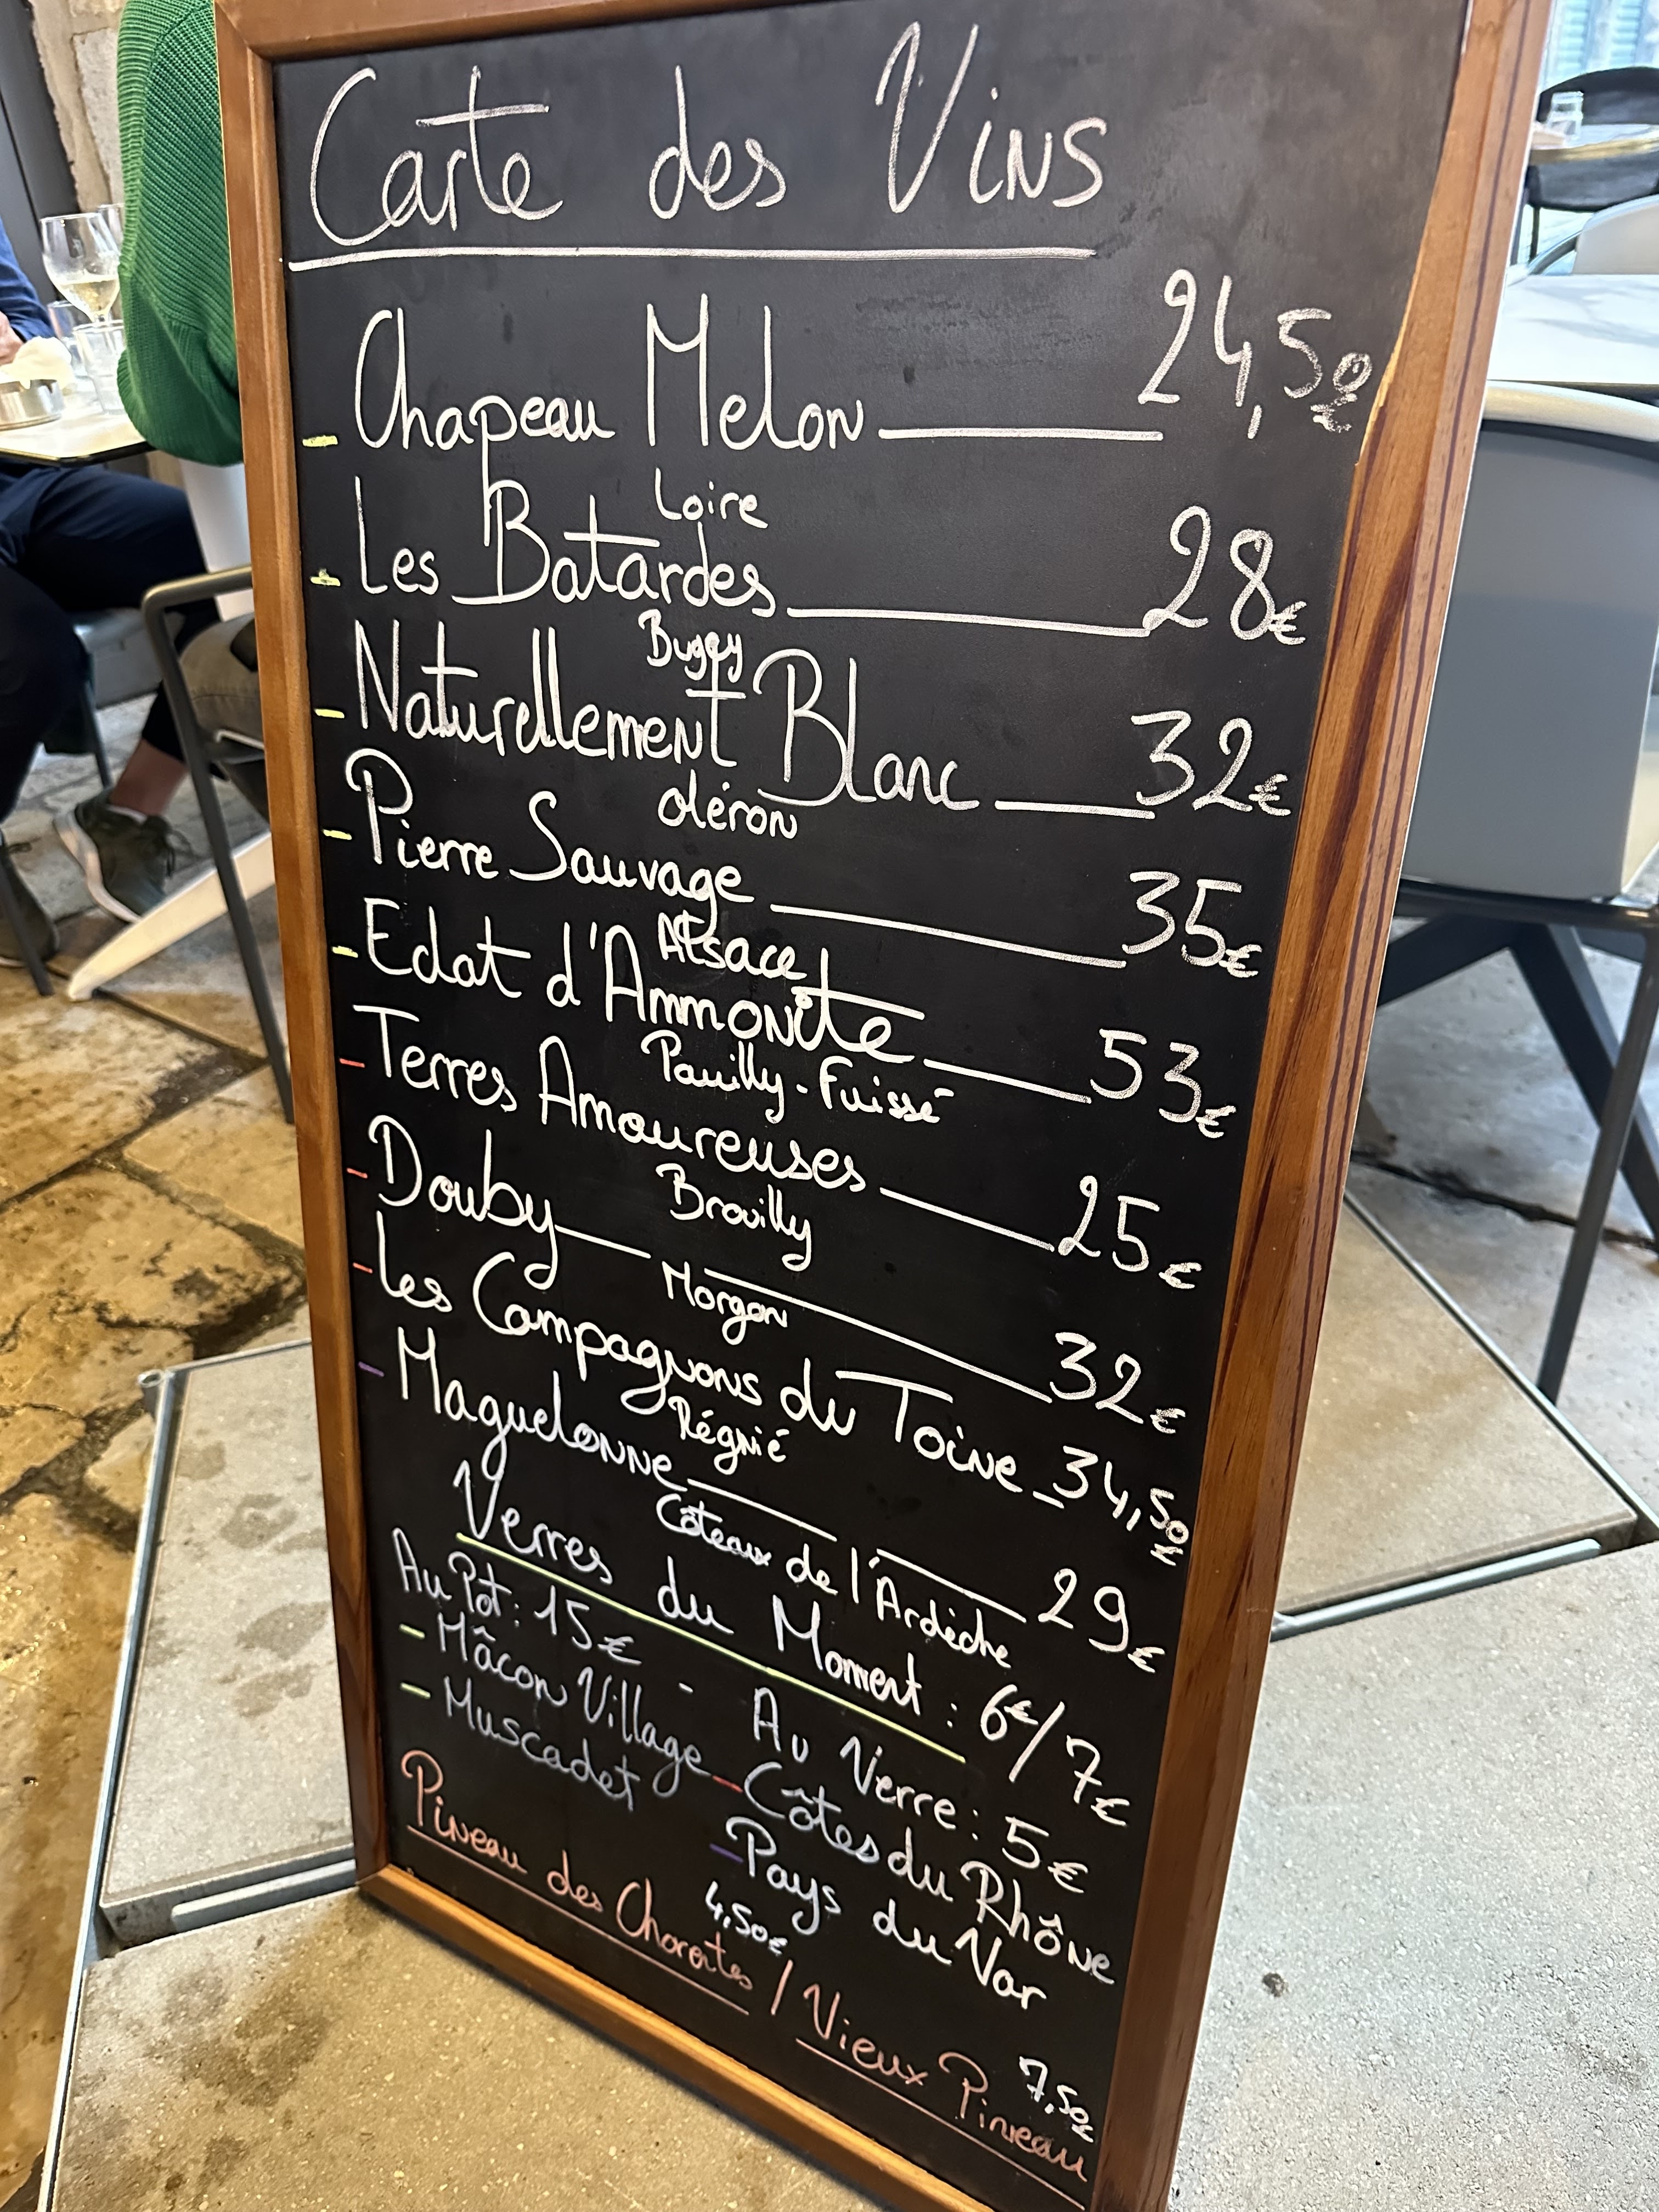 Carte des Vins
- Chapeau Melon 24,50€
Loire
- Les Batardes 28€
Bugey
- Naturellement Blanc 32€
Oléron
- Pierre Sauvage 35€
Alsace
- Eclat d'Ammonite 53€
Pouilly-Fuissé
- Terres Amoureuses 25€
Brouilly
- Douby 32€
Morgon
- Les Compagnons du Toine 34,50€
Régnié
- Maguelonne 29€
Côteaux de l'Ardèche
Verres du Moment : 6€/7€
Au Pot : 15€ - Au Verre : 5€
- Mâcon Village - Côtes du Rhône
- Muscadet - Pays du Var
4,50€ 7,50€
Pineau des Charentes / Vieux Pineau